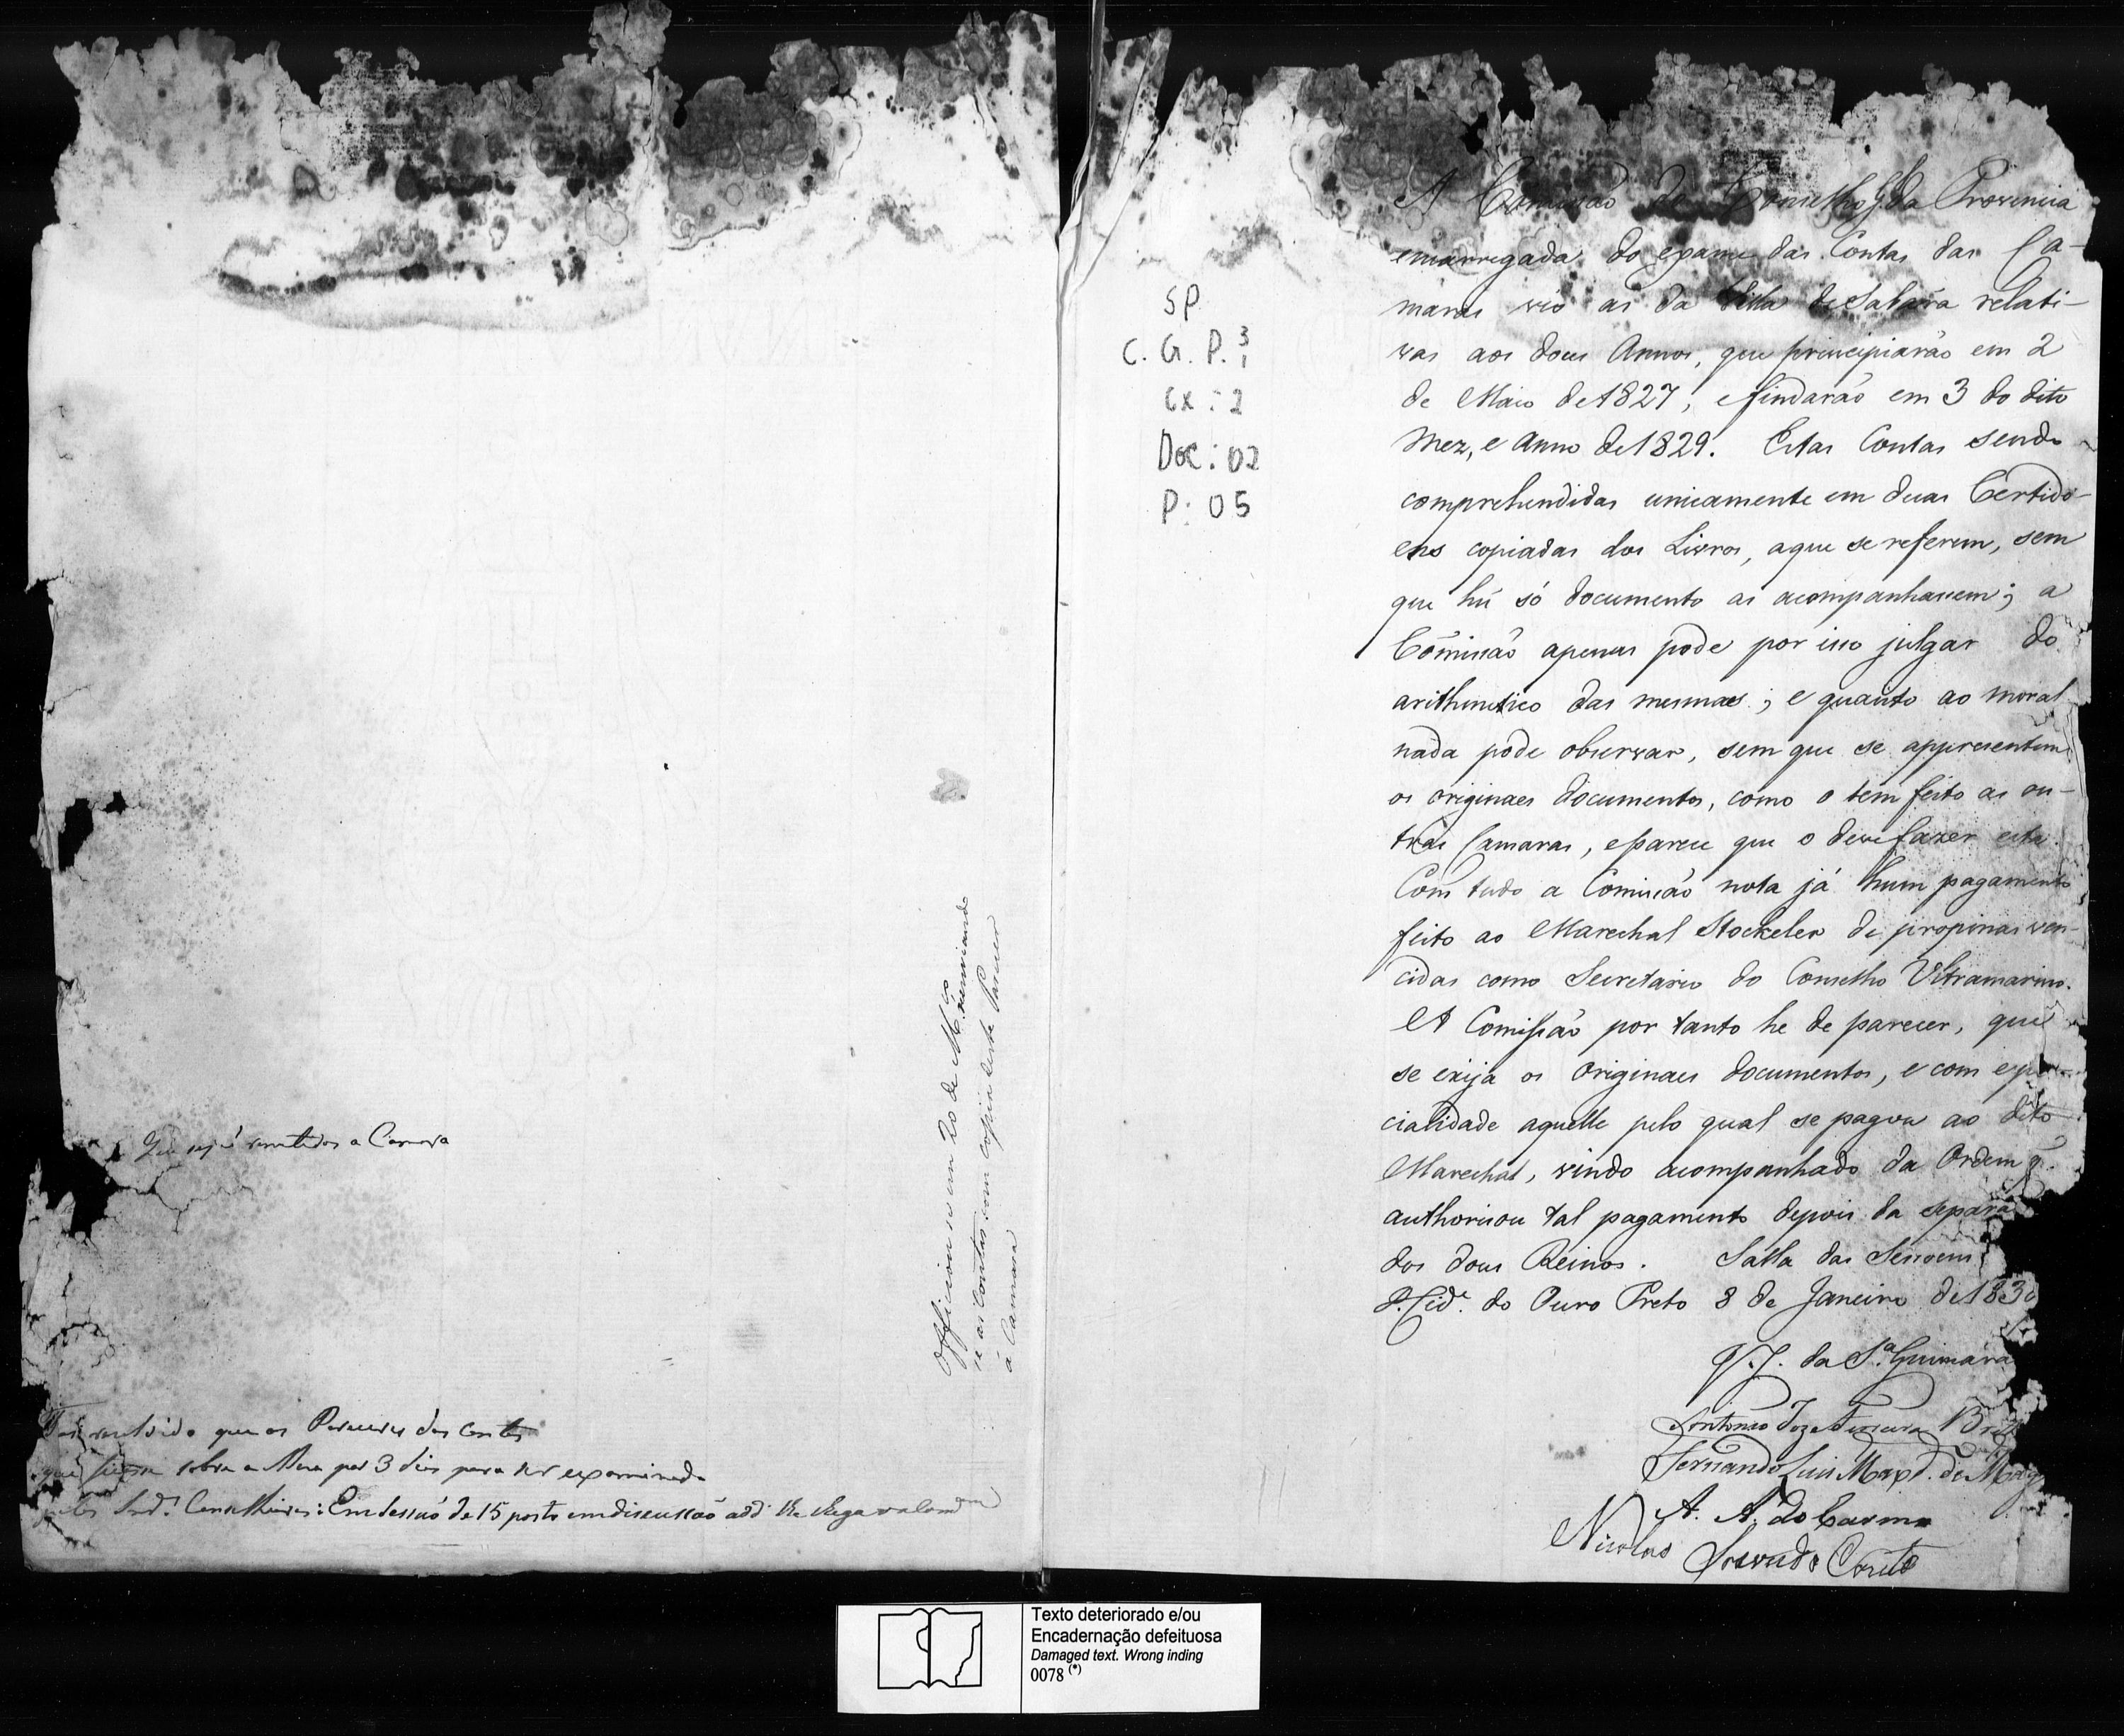 Que sejão remetidos a Camara
Officiou-se em 20 de M.ço remettendo
se as contas com copia deste Parecer
á Camara
Foi resolvido que os Pareceres das contas
sobre a Mesa por 3 dias para ser examinado
Conselheiros: Em sessão de 15 posto em discussão
SP
C. G. P. 3
1
CX: 2
Doc: 02
P: 05
A Comissão do Conselho G. da Provincia
encarregada do exame das Contas das Ca-
maras vio as da Villa de Sabara relati-
vas aos dous Annos, que principiarão em 2
de Maio de 1827, e findarão em 3 do dito
Mez, e Anno de 1829. Estas Contas sendo
comprehendidas unicamente em duas Certido-
ens copiadas dos Livros, a que se referem, sem
que hú só documento as acompanhassem; a
Cõmissão apenas pode por isso julgar do
arithmetico das mesmas; e quanto ao moral
nada pode observar, sem que se appresentem
os originaes documentos, como o tem feito as ou-
tras Camaras, e parece que o deve fazer esta.
Com tudo a Comissão nota já hum pagamento
feito ao Marechal Stockeler de propinas ven-
cidas como Secretario do Conselho Ultramarino.
A Comissão por tanto he de parecer, que
se exija os Originaes documentos, e com espe-
cialidade aquelle pelo qual se pagou ao dito
Marechal, vindo acompanhado da Ordem q̃
authorisou tal pagamento depois da separa
dos dous Reinos. Salla das Sessoens
I. Cid.e do Ouro Preto 8 de Janeiro de 1830
J. J. da S.a Guimarã
Antonio Joze Ferreira Bret
Fernando Luis Maxd. de Mag
A. A. do Carmo
Nicolao Soares do Couto
Texto deteriorado e/ou
Encadernação defeituosa
Damaged text. Wrong inding
0078 (*)